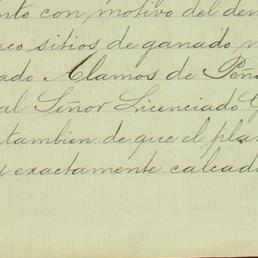 nto con motivo del den
co sitios de ganado m
ado Alamos de Peñ
al Señor Licenciado G
tambien de que el pla
y exactamente calcad